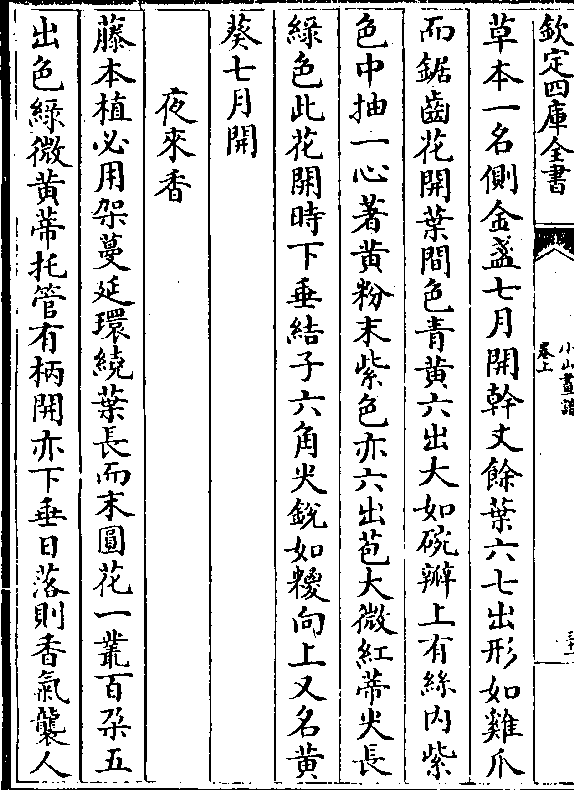 欽定四庫全書
小山畫譜
卷上
草本一名側金盞七月開幹丈餘葉六七出形如雞爪
而鋸齒花開葉間色青黃六出大如碗瓣上有絲内紫
色中抽一心著黃粉末紫色亦六出苞大微紅蒂尖長
綠色此花開時下垂結子六角尖銳如糭向上又名黃
葵七月開
夜來香
藤本植必用架蔓延環繞葉長而末圓花一叢百朶五
出色綠微黃蒂托管有柄開亦下垂日落則香氣襲人